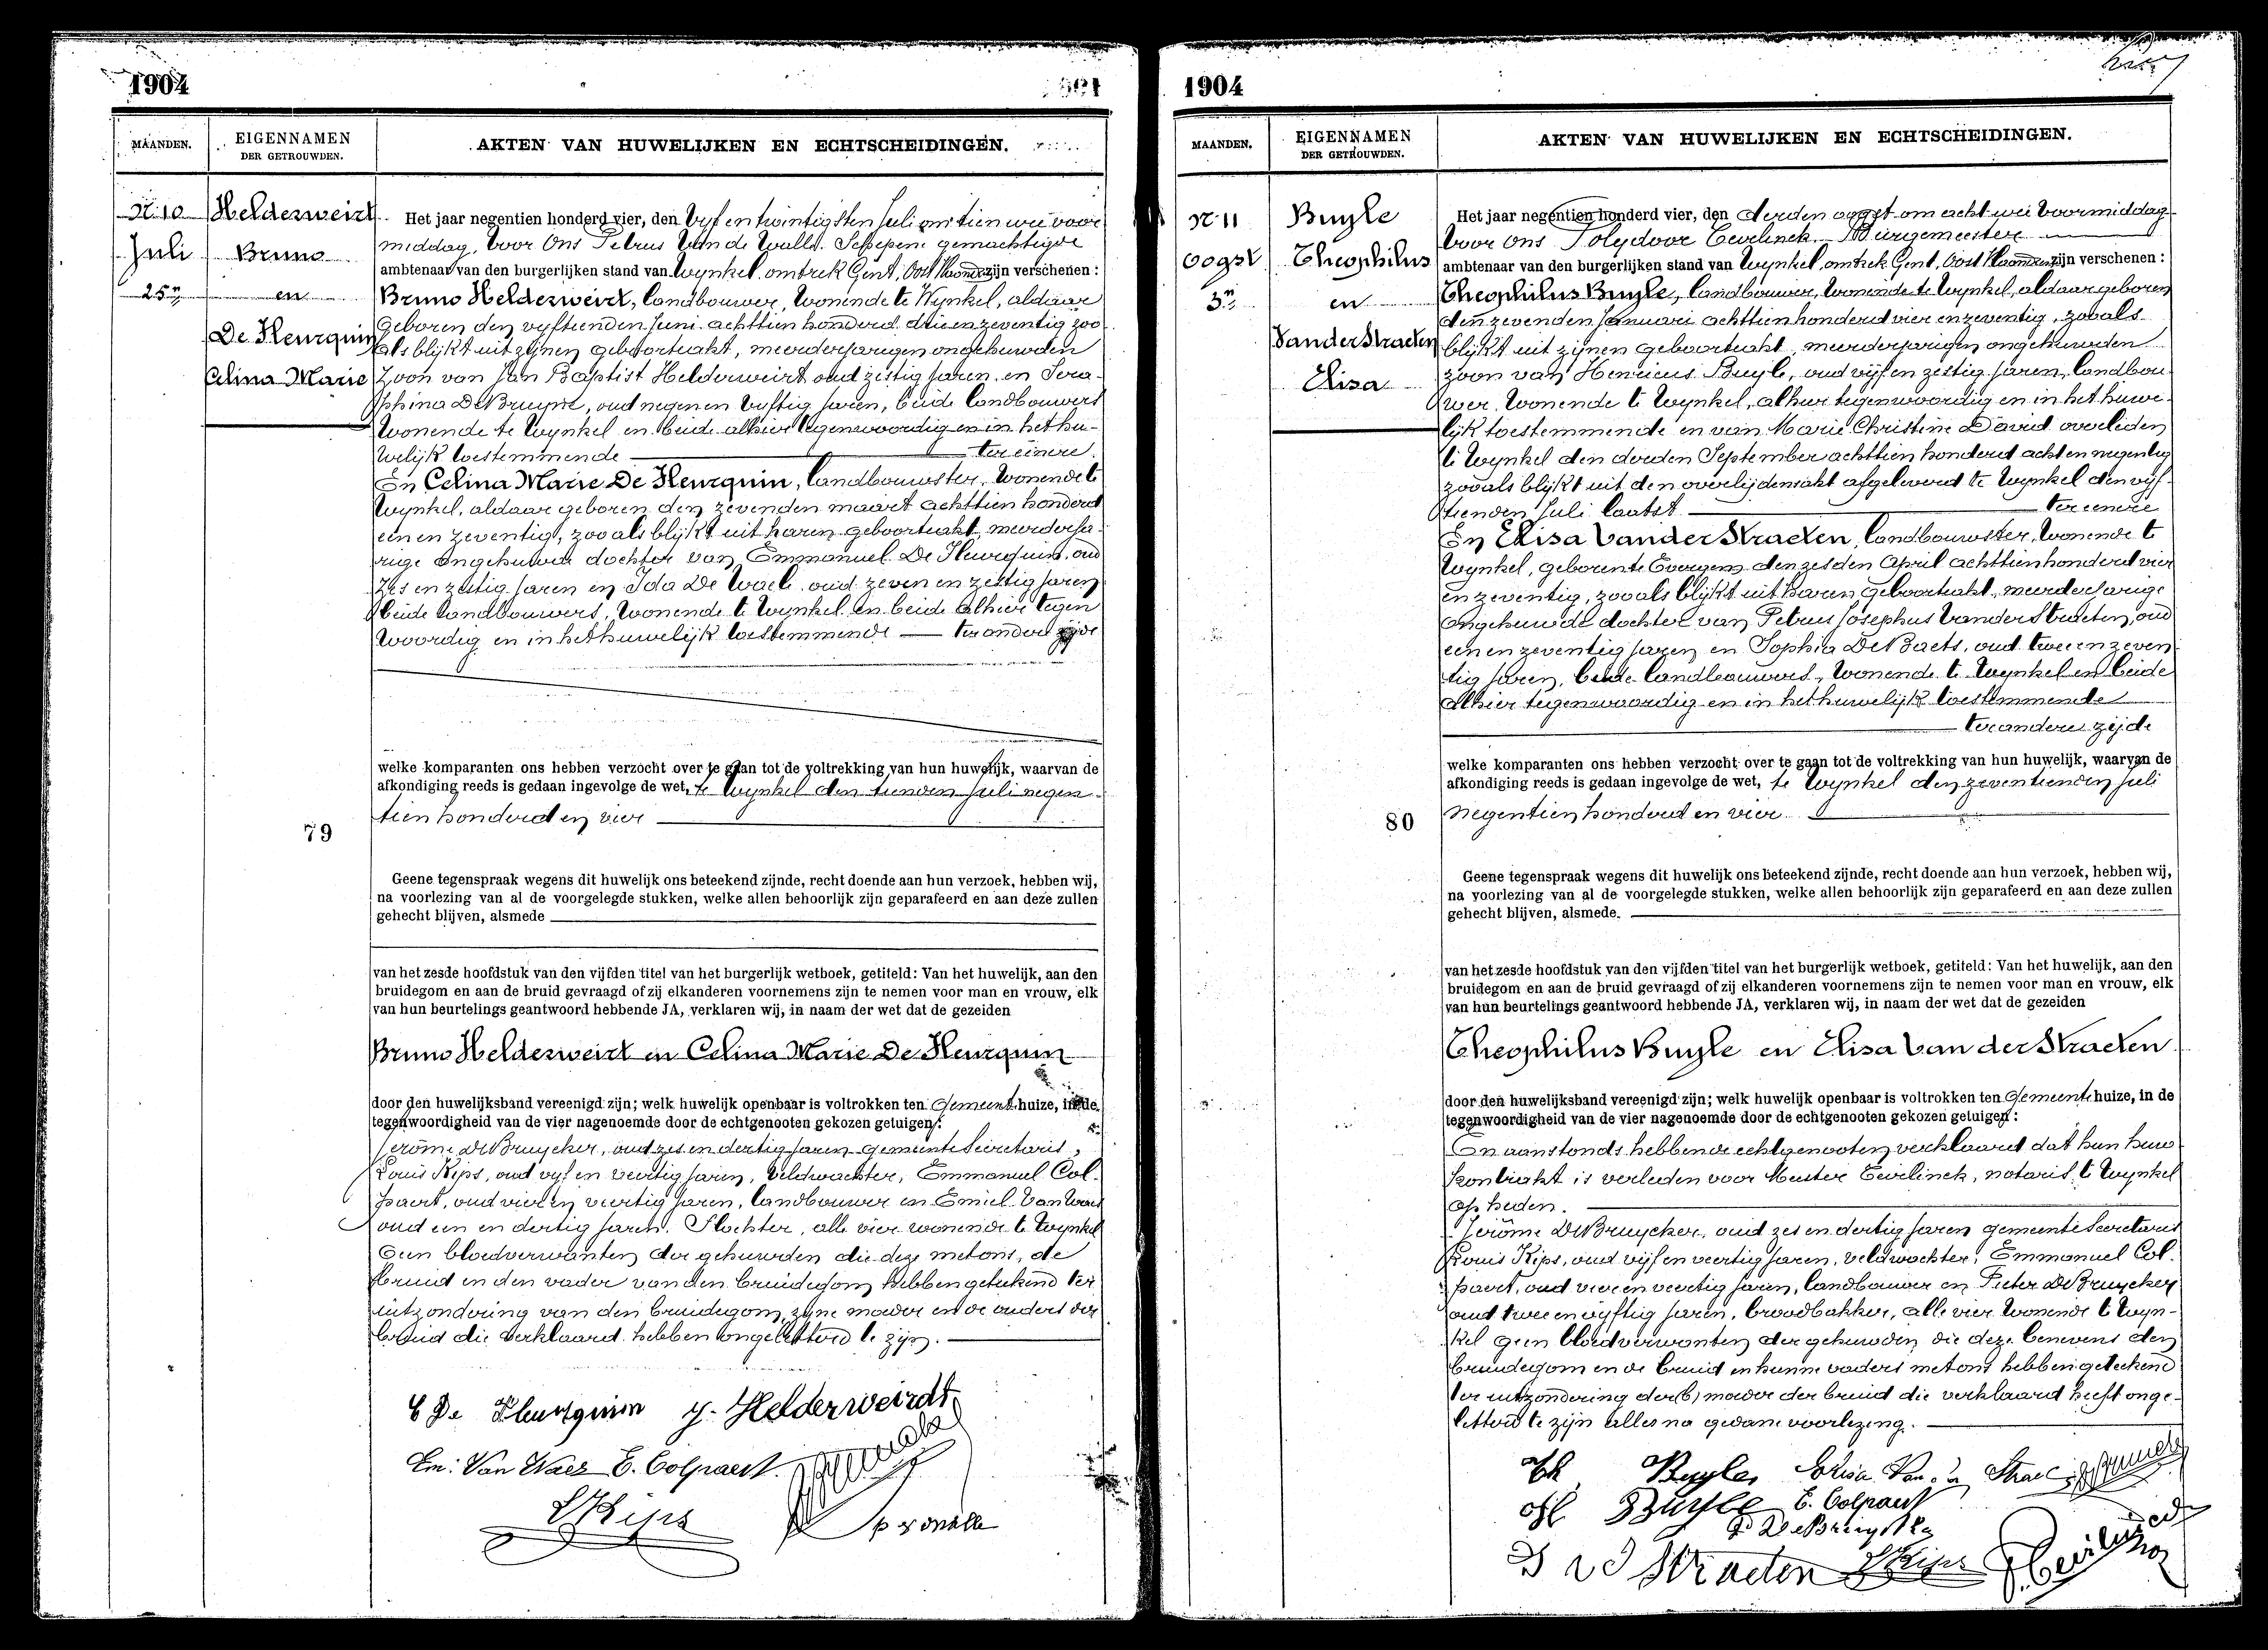 1904
MAANDEN.
EIGENNAMEN
DER GETROUWDEN.
AKTEN VAN HUWELIJKEN EN ECHTSCHEIDINGEN.
N. 10
Juli
25n
Helderweirt
Bruno
en
De Fleurquin
Celina Marie
Het jaar negentien honderd vier, den vijf en twintigsten Juli om tien ure voor
middag, voor Ons Petrus Van de Walle. Schepene gemachtigde
ambtenaar van den burgerlijken stand van Wynkel, omtrek Gent, Oost Vlaanderen zijn verschenen :
Bruno Helderweirt, landbouwer, wonende te Wynkel, aldaar
geboren den vyftienden Juni achttien honderd drie en zeventig zoo
als blijkt uit zijnen geboorteakt, meerderjarigen ongehuwden
Zoon van Jan Baptist Helderweirt oud zestig jaren, en Sera-
phina De Bruyne, oud negen en vyftig jaren, beide landbouwers
wonende te Wynkel en beide alhier tegenwoordig en in het hu-
welijk toestemmende ter eenere
En Celina Marie De Fleurquin, landbouwster, wonende te
Wynkel, aldaar geboren den zevenden maart achttien honderd
een en zeventig, zoo als blijkt uit haren geboorteakt, meerderja-
rige ongehuwde dochter van Emmanuel De Fleurquin, oud
zes en zestig jaren en Ida De Waele oud zeven en zestig jaren
beide landbouwers, wonende te Wynkel en beide alhier tegen
woordig en in het huwelijk toestemmende ter andere zijde
welke komparanten ons hebben verzocht over te gaan tot de voltrekking van hun huwelijk, waarvan de
afkondiging reeds is gedaan ingevolge de wet, te Wynkel den tienden Juli negen
tien honderd en vier
79
Geene tegenspraak wegens dit huwelijk ons beteekend zijnde, recht doende aan hun verzoek, hebben wij,
na voorlezing van al de voorgelegde stukken, welke allen behoorlijk zijn geparafeerd en aan deze zullen
gehecht blijven, alsmede
van het zesde hoofdstuk van den vijfden titel van het burgerlijk wetboek, getiteld: Van het huwelijk, aan den
bruidegom en aan de bruid gevraagd of zij elkanderen voornemens zijn te nemen voor man en vrouw, elk
van hun beurtelings geantwoord hebbende JA, verklaren wij, in naam der wet dat de gezeiden
Bruno Helderweirt en Celina Marie De Fleurquin
door den huwelijksband vereenigd zijn; welk huwelijk openbaar is voltrokken ten Gemeentehuize, in de
tegenwoordigheid van de vier nagenoemde door de echtgenooten gekozen getuigen:
Jeröme De Bruycker, oud zes en dertig jaren gemeente Secretaris,
Louis Kips, oud vijf en veertig jaren, veldwachter, Emmanuel Col-
paert, oud vier en veertig jaren, landbouwer en Emiel Van Waes
oud een en dertig jaren. Slachter, alle vier wonende te Wynkel
Geen bloedverwanten der gehuwden die deze met ons, de
bruid en den vader van den bruidegom hebben geteekend ter
uitzondering van den bruidegom, zijne moeder en de ouders der
bruid die verklaard hebben ongeletterd te zijn.
C De Fleurquin J. Helderweirdt
Em: Van Waes E. Colpaert
L Kips
1904
MAANDEN.
EIGENNAMEN
DER GETROUWDEN.
AKTEN VAN HUWELIJKEN EN ECHTSCHEIDINGEN.
N. 11
Oogst
3n
Buyle
Theophilus
en
Vander Straeten
Elisa
Het jaar negentien honderd vier, den derden oogst om acht ure voormiddag
voor Ons Polydoor Eevelinck Burgemeester
ambtenaar van den burgerlijken stand van Wynkel, omtrek Gent, Oost Vlaanderen zijn verschenen :
Theophilus Buyle, landbouwer, wonende te Wynkel, aldaar geboren
den zevenden Januari achttien honderd vier en zeventig, zooals
blijkt uit zijnen geboorteakt, meerderjarigen ongehuwden
zoon van Henricus Buyle, oud vijf en zestig jaren, landbou-
wer, wonende te Wynkel, alhier tegenwoordig en in het huwe-
lijk toestemmende en van Marie Christine David overleden
te Wynkel den derden September achttien honderd acht en negentig
zooals blijkt uit den overlijdensakt afgeleverd te Wynkel den vijf-
tienden Juli laatst ter eenere
En Elisa Vander Straeten, landbouwster, wonende te
Wynkel, geboren te Evergem den zesden April achttien honderd vier
en zeventig, zoo als blijkt uit haren geboorteakt, meerderjarige
ongehuwde dochter van Petrus Josephus Vander Straeten, oud
een en zeventig jaren en Sophia De Baets, oud twee en zeven
tig jaren, beide landbouwers, wonende te Wynkel en beide
alhier tegenwoordig en in het huwelijk toestemmende
ter andere zijde
welke komparanten ons hebben verzocht over te gaan tot de voltrekking van hun huwelijk, waarvan de
afkondiging reeds is gedaan ingevolge de wet, te Wynkel den zeventienden Juli
negentien honderd en vier
80
Geene tegenspraak wegens dit huwelijk ons beteekend zijnde, recht doende aan hun verzoek, hebben wij,
na voorlezing van al de voorgelegde stukken, welke allen behoorlijk zijn geparafeerd en aan deze zullen
gehecht blijven, alsmede.
van het zesde hoofdstuk van den vijfden titel van het burgerlijk wetboek, getiteld: Van het huwelijk, aan den
bruidegom en aan de bruid gevraagd of zij elkanderen voornemens zijn te nemen voor man en vrouw, elk
van hun beurtelings geantwoord hebbende JA, verklaren wij, in naam der wet dat de gezeiden
Theophilus Buyle en Elisa Van der Straeten
door den huwelijksband vereenigd zijn; welk huwelijk openbaar is voltrokken ten Gemeentehuize, in de
tegenwoordigheid van de vier nagenoemde door de echtgenooten gekozen getuigen:
En aanstonds hebben de echtgenooten verklaard dat hun huw
kontrakt is verleden voor Meester Eevelinck, notaris te Wynkel
op heden.
Jeröme De Bruycker, oud zes en dertig jaren gemeente Secretaris
Louis Kips, oud vijf en veertig jaren, veldwachter, Emmanuel Col-
paert, oud vier en veertig jaren, landbouwer en Pieter De Bruycker
oud twee en vijftig jaren, broodbakker, alle vier wonende te Wyn-
kel geen bloedverwanten der gehuwden die deze benevens den
bruidegom en de bruid en hunne vaders met ons hebben geteekend
ter uitzondering der (b) moeder der bruid die verklaard heeft onge-
letterd te zijn alles na gedane voorlezing.
Th Buyle, Elisa Van der Strae
H. Buyle E. Colpaert
P. De Bruycker
P v d Straeten L Kips